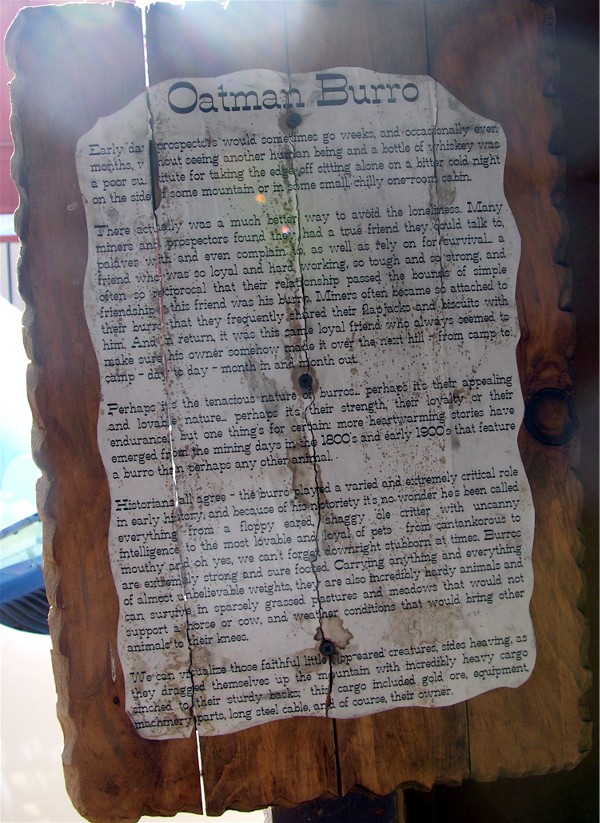 Oatman Burro
Early day prospectors would sometimes go weeks, and occasionally even
months, without seeing another human being and a bottle of whiskey was
a poor substitute for taking the edge off sitting alone on a bitter cold night
on the side of some mountain or in some small, chilly one-room cabin.
There actually was a much better way to avoid the loneliness. Many
miners and prospectors found they had a true friend they could talk to,
palaver with and even complain to, as well as rely on for survival... a
friend who was so loyal and hard working, so tough and so strong, and
often so reciprocal that their relationship passed the bounds of simple
friendship - this friend was his burro. Miners often became so attached to
their burro that they frequently shared their flapjacks and biscuits with
him. And in return, it was this same loyal friend who always seemed to
make sure his owner somehow made it over the next hill - from camp to
camp - day to day - month in and month out.
Perhaps it's the tenacious nature of burros... perhaps it's their appealing
and lovable nature... perhaps it's their strength, their loyalty or their
endurance, but one thing's for certain: more heartwarming stories have
emerged from the mining days in the 1800's and early 1900's that feature
a burro than perhaps any other animal.
Historians all agree - the burro played a varied and extremely critical role
in early history, and because of his notoriety it's no wonder he's been called
everything from a floppy eared, shaggy ole critter with uncanny
intelligence to the most lovable and loyal of pets - from cantankerous to
mouthy and oh yes, we can't forget downright stubborn at times. Burros
are extremely strong and sure footed. Carrying anything and everything
of almost unbelievable weights, they are also incredibly hardy animals and
can survive in sparsely grassed pastures and meadows that would not
support a horse or cow, and weather conditions that would bring other
animals to their knees.
We can visualize those faithful little flop-eared creatures, sides heaving, as
they dragged themselves up the mountain with incredibly heavy cargo
cinched to their sturdy backs; this cargo included gold ore, equipment,
machinery parts, long steel cable, and of course, their owner.